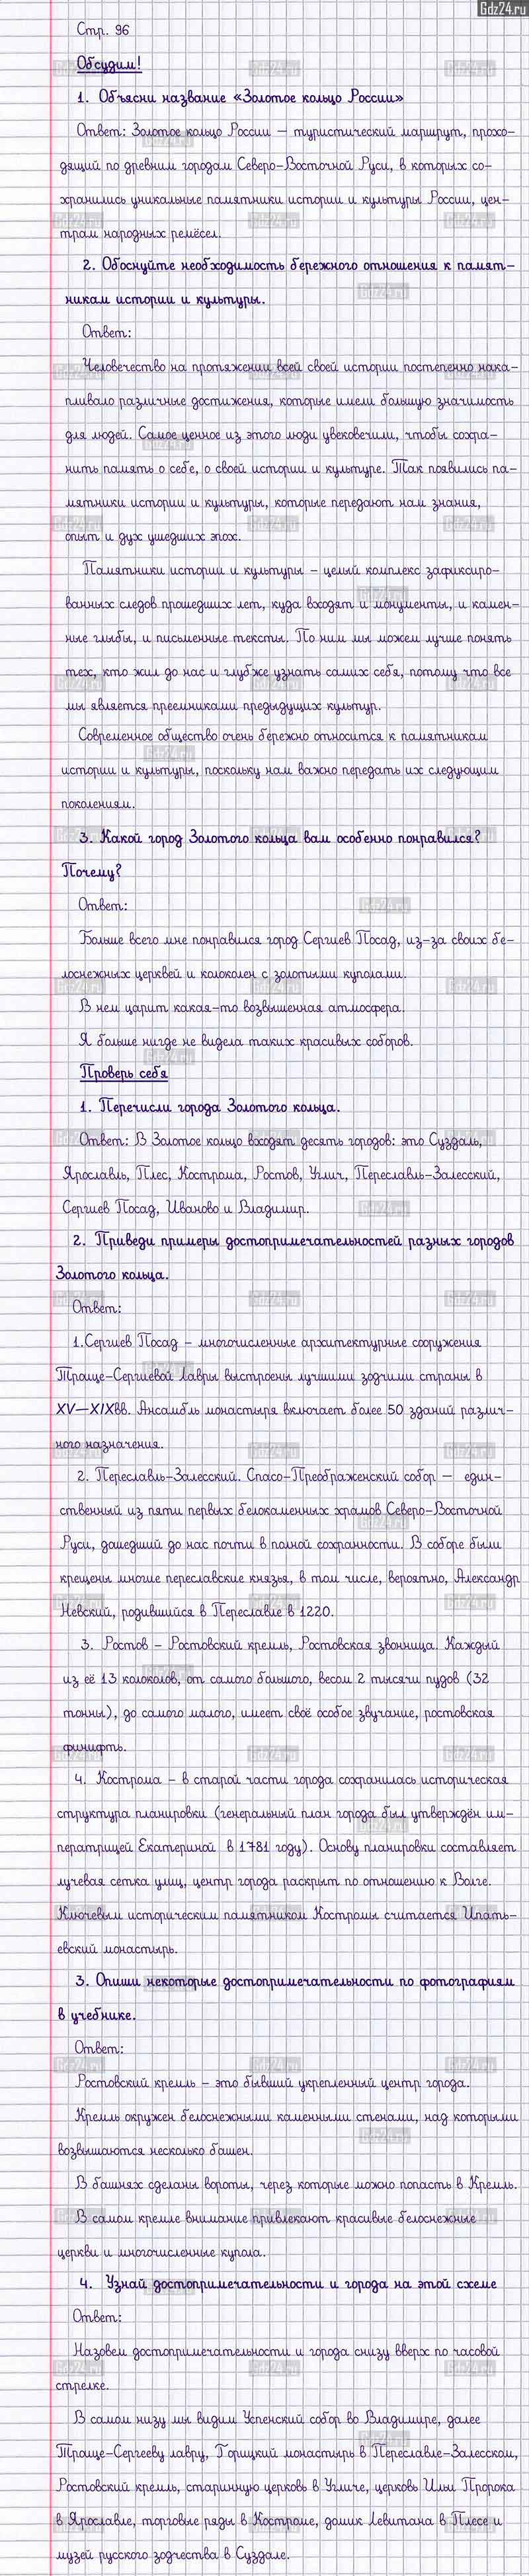 Gdz24.ru
Стр. 96
Обсудим!
1. Объясни название «Золотое кольцо России»
Ответ: Золотое кольцо России – туристический маршрут, прохо-
дящий по древним городам Северо-Восточной Руси, в которых со-
хранились уникальные памятники истории и культуры России, цен-
трам народных ремёсел.
2. Обоснуйте необходимость бережного отношения к памят-
никам истории и культуры.
Ответ:
Человечество на протяжении всей своей истории постепенно нака-
пливало различные достижения, которые имели большую значимость
для людей. Самое ценное из этого люди увековечили, чтобы сохра-
нить память о себе, о своей истории и культуре. Так появились па-
мятники истории и культуры, которые передают нам знания,
опыт и дух ушедших эпох.
Памятники истории и культуры – целый комплекс зафиксиро-
ванных следов прошедших лет, куда входят и монументы, и камен-
ные глыбы, и письменные тексты. По ним мы можем лучше понять
тех, кто жил до нас и глубже узнать самих себя, потому что все
мы является преемниками предыдущих культур.
Современное общество очень бережно относится к памятникам
истории и культуры, поскольку нам важно передать их следующим
поколениям.
3. Какой город Золотого кольца вам особенно понравился?
Почему?
Ответ:
Больше всего мне понравился город Сергиев Посад, из-за своих бе-
лоснежных церквей и колоколен с золотыми куполами.
В нем царит какая-то возвышенная атмосфера.
Я больше нигде не видела таких красивых соборов.
Проверь себя
1. Перечисли города Золотого кольца.
Ответ: В Золотое кольцо входят десять городов: это Суздаль,
Ярославль, Плес, Кострома, Ростов, Углич, Переславль-Залесский,
Сергиев Посад, Иваново и Владимир.
2. Приведи примеры достопримечательностей разных городов
Золотого кольца.
Ответ:
1.Сергиев Посад – многочисленные архитектурные сооружения
Троице-Сергиевой Лавры выстроены лучшими зодчими страны в
XV—XIXвв. Ансамбль монастыря включает более 50 зданий различ-
ного назначения.
2. Переславль-Залесский. Спасо-Преображенский собор – един-
ственный из пяти первых белокаменных храмов Северо-Восточной
Руси, дошедший до нас почти в полной сохранности. В соборе были
крещены многие переславские князья, в том числе, вероятно, Александр
Невский, родившийся в Переславле в 1220.
3. Ростов – Ростовский кремль, Ростовская звонница. Каждый
из её 13 колоколов, от самого большого, весом 2 тысячи пудов (32
тонны), до самого малого, имеет своё особое звучание, ростовская
финифть.
4. Кострома – в старой части города сохранилась историческая
структура планировки (генеральный план города был утверждён им-
ператрицей Екатериной в 1781 году). Основу планировки составляет
лучевая сетка улиц, центр города раскрыт по отношению к Волге.
Ключевым историческим памятником Костромы считается Ипать-
евский монастырь.
3. Опиши некоторые достопримечательности по фотографиям
в учебнике.
Ответ:
Ростовский кремль – это бывший укрепленный центр города.
Кремль окружен белоснежными каменными стенами, над которыми
возвышаются несколько башен.
В башнях сделаны вороты, через которые можно попасть в Кремль.
В самом кремле внимание привлекают красивые белоснежные
церкви и многочисленные купола.
4. Узнай достопримечательности и города на этой схеме
Ответ:
Назовем достопримечательности и города снизу вверх по часовой
стрелке.
В самом низу мы видим Успенский собор во Владимире, далее
Троице-Сергееву лавру, Горицкий монастырь в Переславле-Залесском,
Ростовский кремль, старинную церковь в Угличе, церковь Ильи Пророка
в Ярославле, торговые ряды в Костроме, домик Левитана в Плесе и
музей русского зодчества в Суздале.